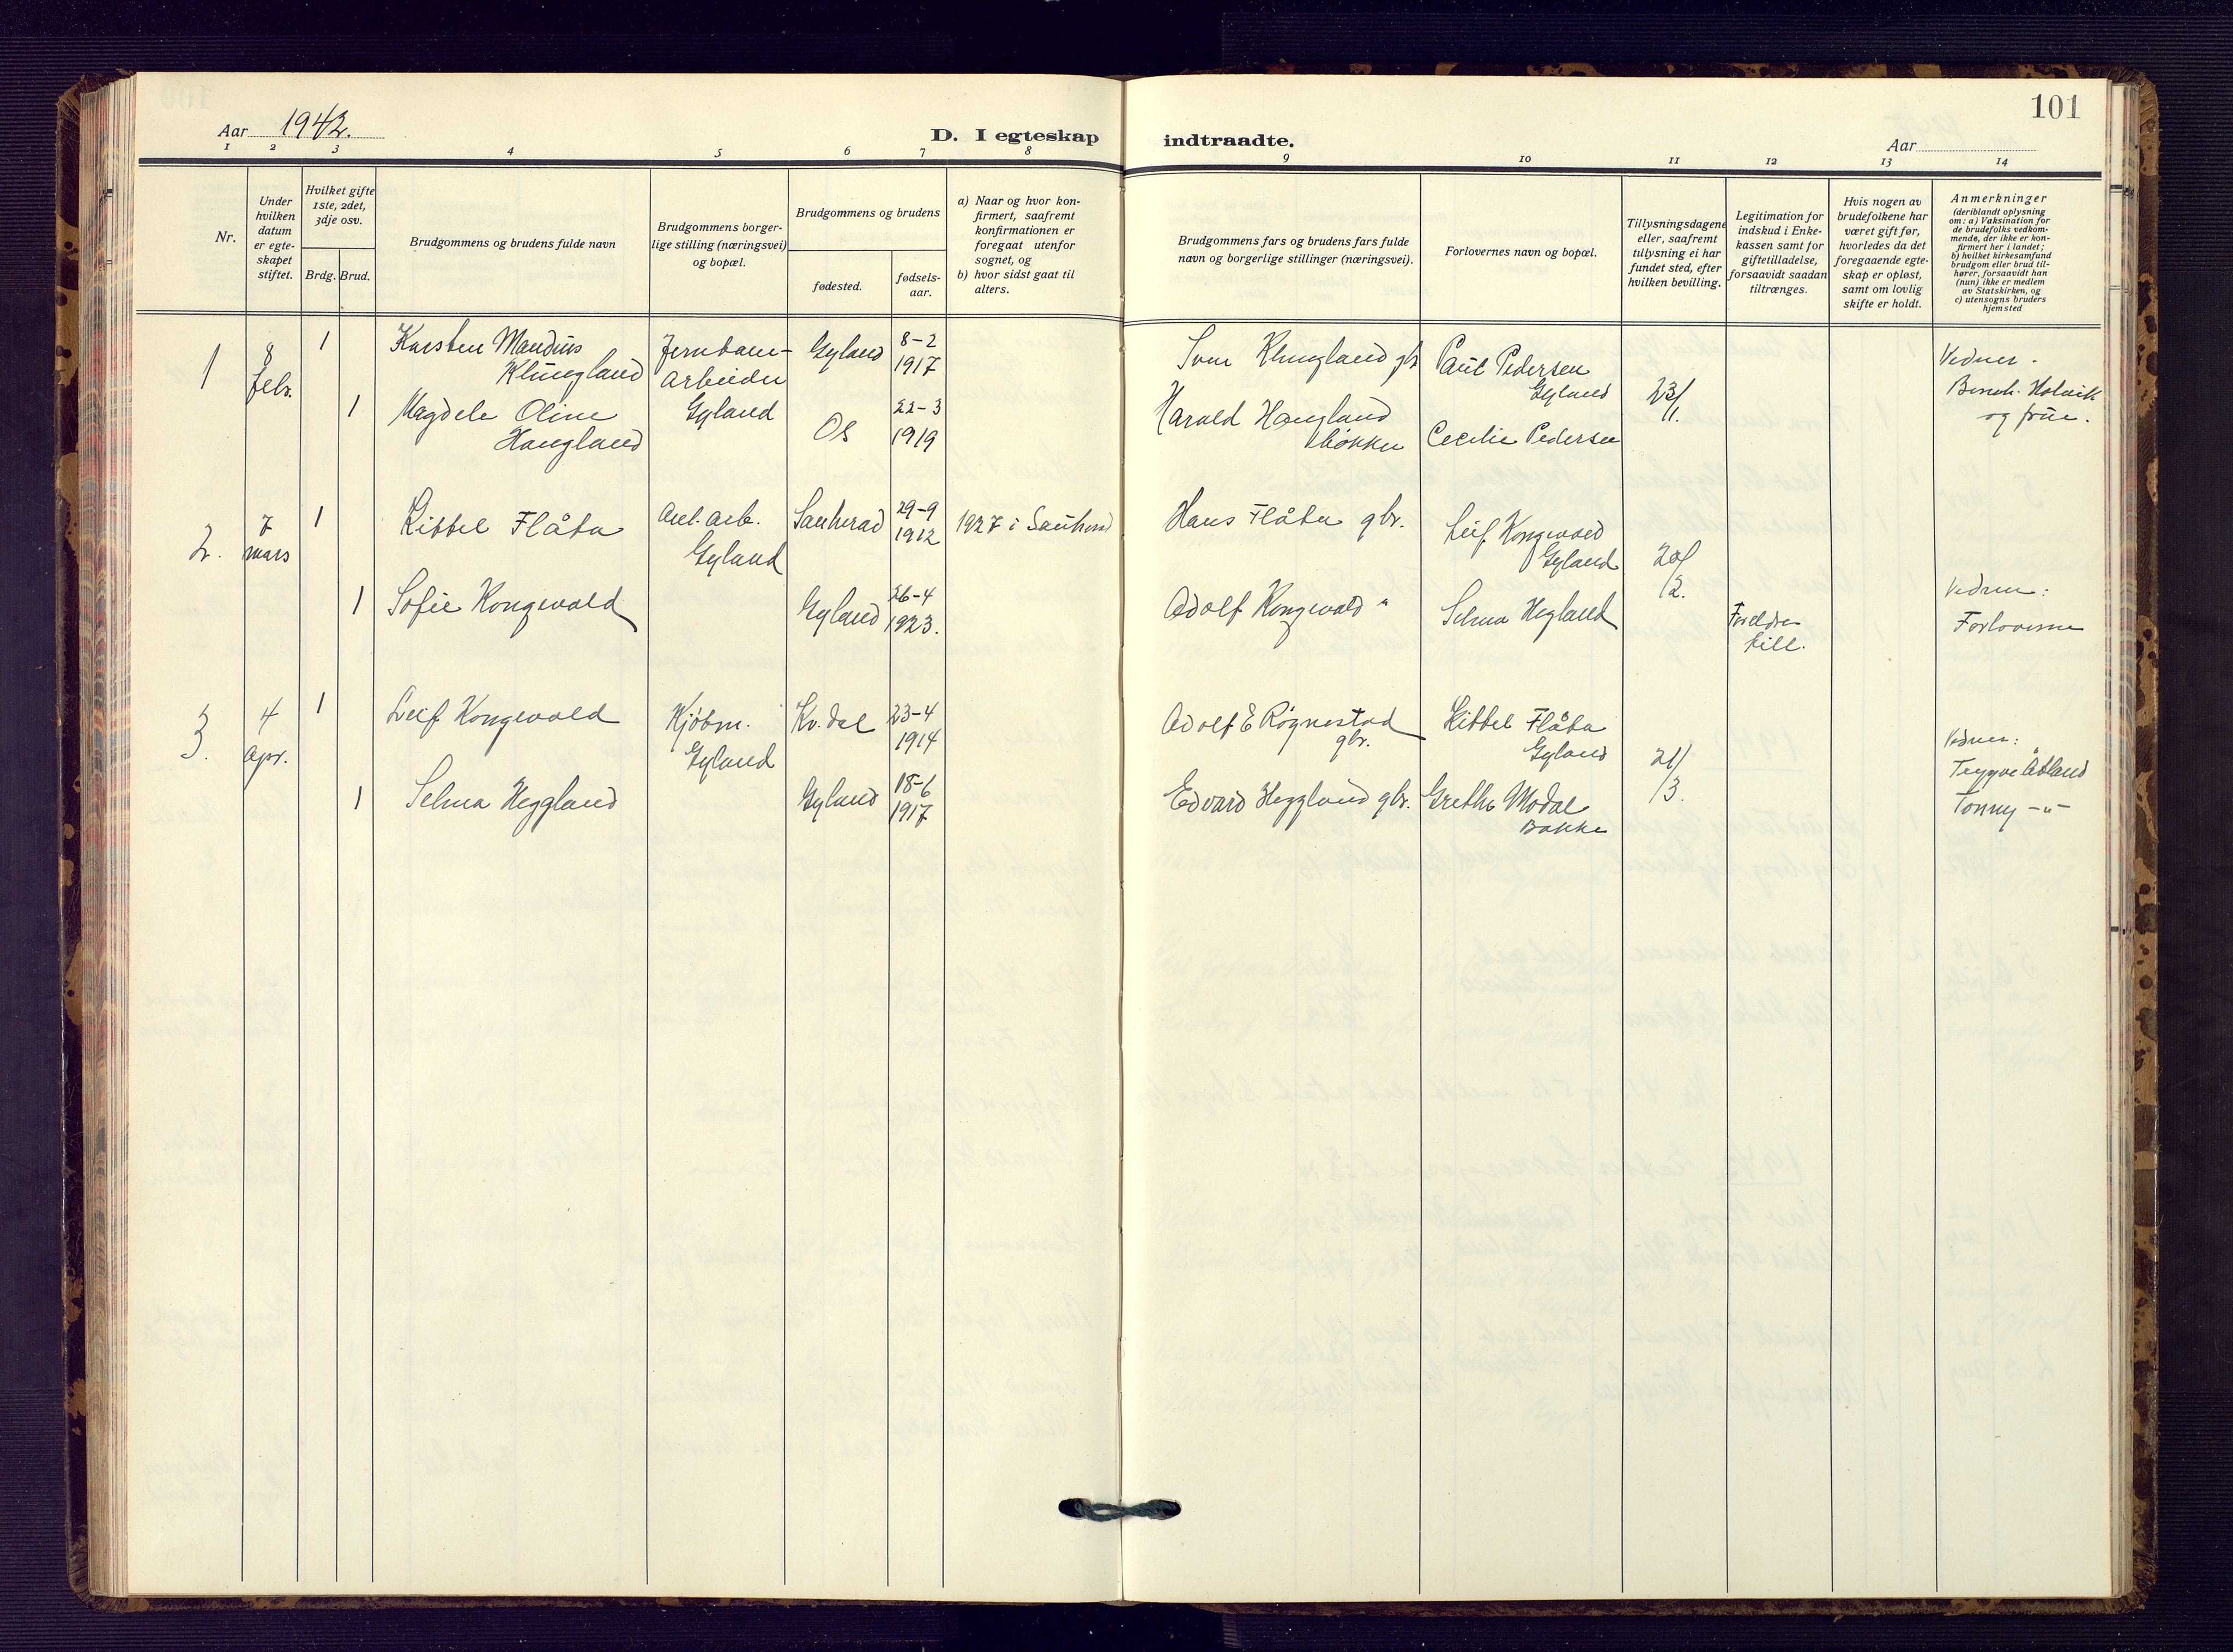 101
Aar 1942.
D. I egteskap indtraadte.
Aar
1 2 3 4 5 6 7 8 9 10 11 12 13 14
Nr.
Under
hvilken
datum
er egte-
skapet
stiftet.
Hvilket gifte
1ste, 2det,
3dje osv.
Brdg. Brud.
Brudgommens og brudens fulde navn
Brudgommens borger-
lige stilling (næringsvei)
og bopæl.
Brudgommens og brudens
fødested.
fødsels-
aar.
a) Naar og hvor kon-
firmert, saafremt
konfirmationen er
foregaat utenfor
sognet, og
b) hvor sidst gaat til
alters.
Brudgommens fars og brudens fars fulde
navn og borgerlige stillinger (næringsvei).
Forlovernes navn og bopæl.
Tillysningsdagene
eller, saafremt
tillysning ei har
fundet sted, efter
hvilken bevilling.
Legitimation for
indskud i Enke-
kassen samt for
giftetilladelse,
forsaavidt saadan
tiltrænges.
Hvis nogen av
brudefolkene har
været gift før,
hvorledes da det
foregaaende egte-
skap er opløst,
samt om lovlig
skifte er holdt.
Anmerkninger
(deriblandt oplysning
om: a) Vaksination for
de brudefolks vedkom-
mende, der ikke er kon-
firmert her i landet;
b) hvilket kirkesamfund
brudgom eller brud til-
hører, forsaavidt han
(hun) ikke er medlem
av Statskirken, og
c) utensogns bruders
hjemsted
1
8
febr.
1
Karsten Mandius
Klungland
Jernbane-
arbeider
Gyland
Gyland
8-2
1917
Sven Klungland gbr
Paul Pedersen
Gyland
23/1.
Vidner.
Holvik
og frue.
1
Magdele Oline
Haugland
Os
22-3
1919
Harald Haugland
bøkker
Cecilie Pedersen
2.
7
mars
1
Kittel Flåta
Anl. arb.
Gyland
Sauherad
29-9
1912
1927 i Sauherad
Hans Flåta gbr.
Leif Kongevold
Gyland
20/2.
1
Sofie Kongevold
Gyland
26-4
1923.
Adolf Kongevold "
Selma Hegland
Foreldre
till.
Vidner:
Forloverne
3.
4
apr.
1
Leif Kongevold
Kjøbm.
Gyland
Kv.dal
23-4
1914
Adolf E Røgnestad
gbr.
Kittel Flåta
Gyland
21/3.
Vidner:
Trygve Åtland
Tonny -"-
1
Selma Heggland
Gyland
18-6
1917
Edvard Heggland gbr.
Grethe Modal
Bakke